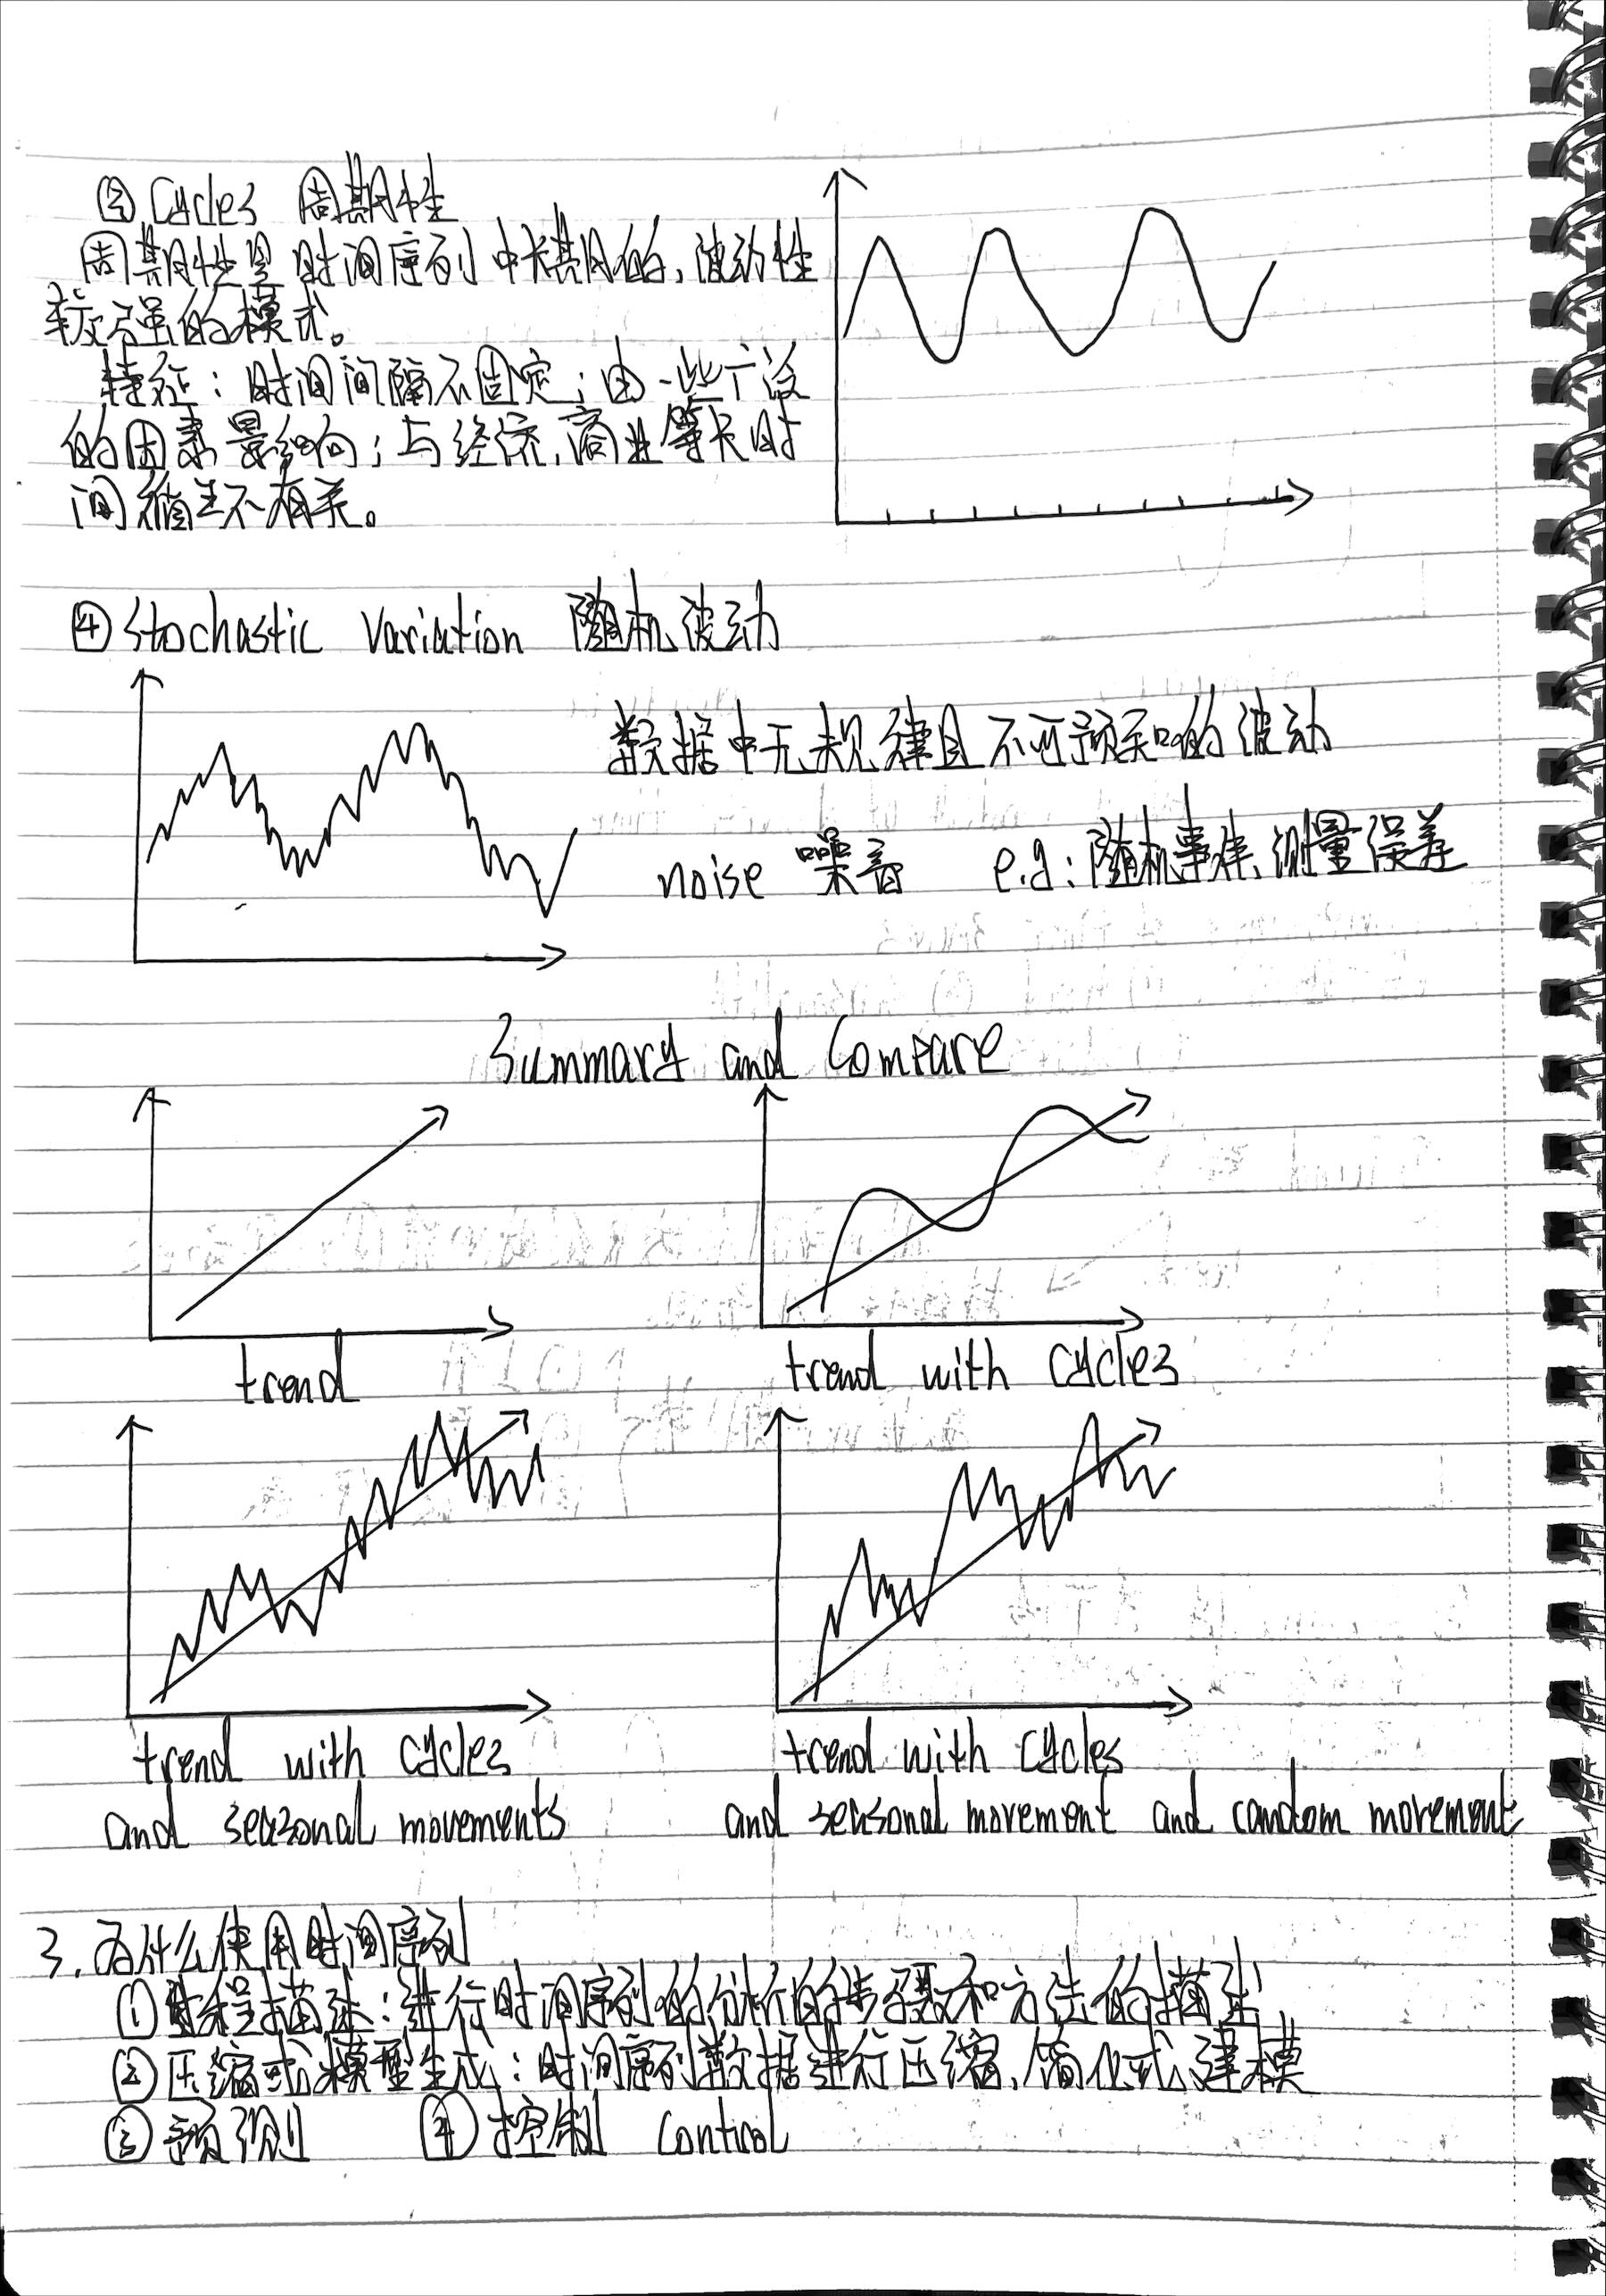 ③ Cycles 周期性
周期性是时间序列中长期的,波动性
较强的模式。
特征:时间间隔不固定;由一些广泛
的因素影响;与经济,商业等长时
间有关。
④ Stochastic Variation 随机波动
数据中无规律且不可预知的波动
noise 噪音 e.g:随机事件、测量误差
Summary and Compare
trend
trend with cycles
trend with cycles
and seasonal movements
trend with cycles
and seasonal movement and random movement
3.为什么使用时间序列
①过程描述:进行时间序列的分析的步骤和方法的描述
②压缩或模型生成:时间序列数据进行压缩,简化或建模
③预测 ④控制 control